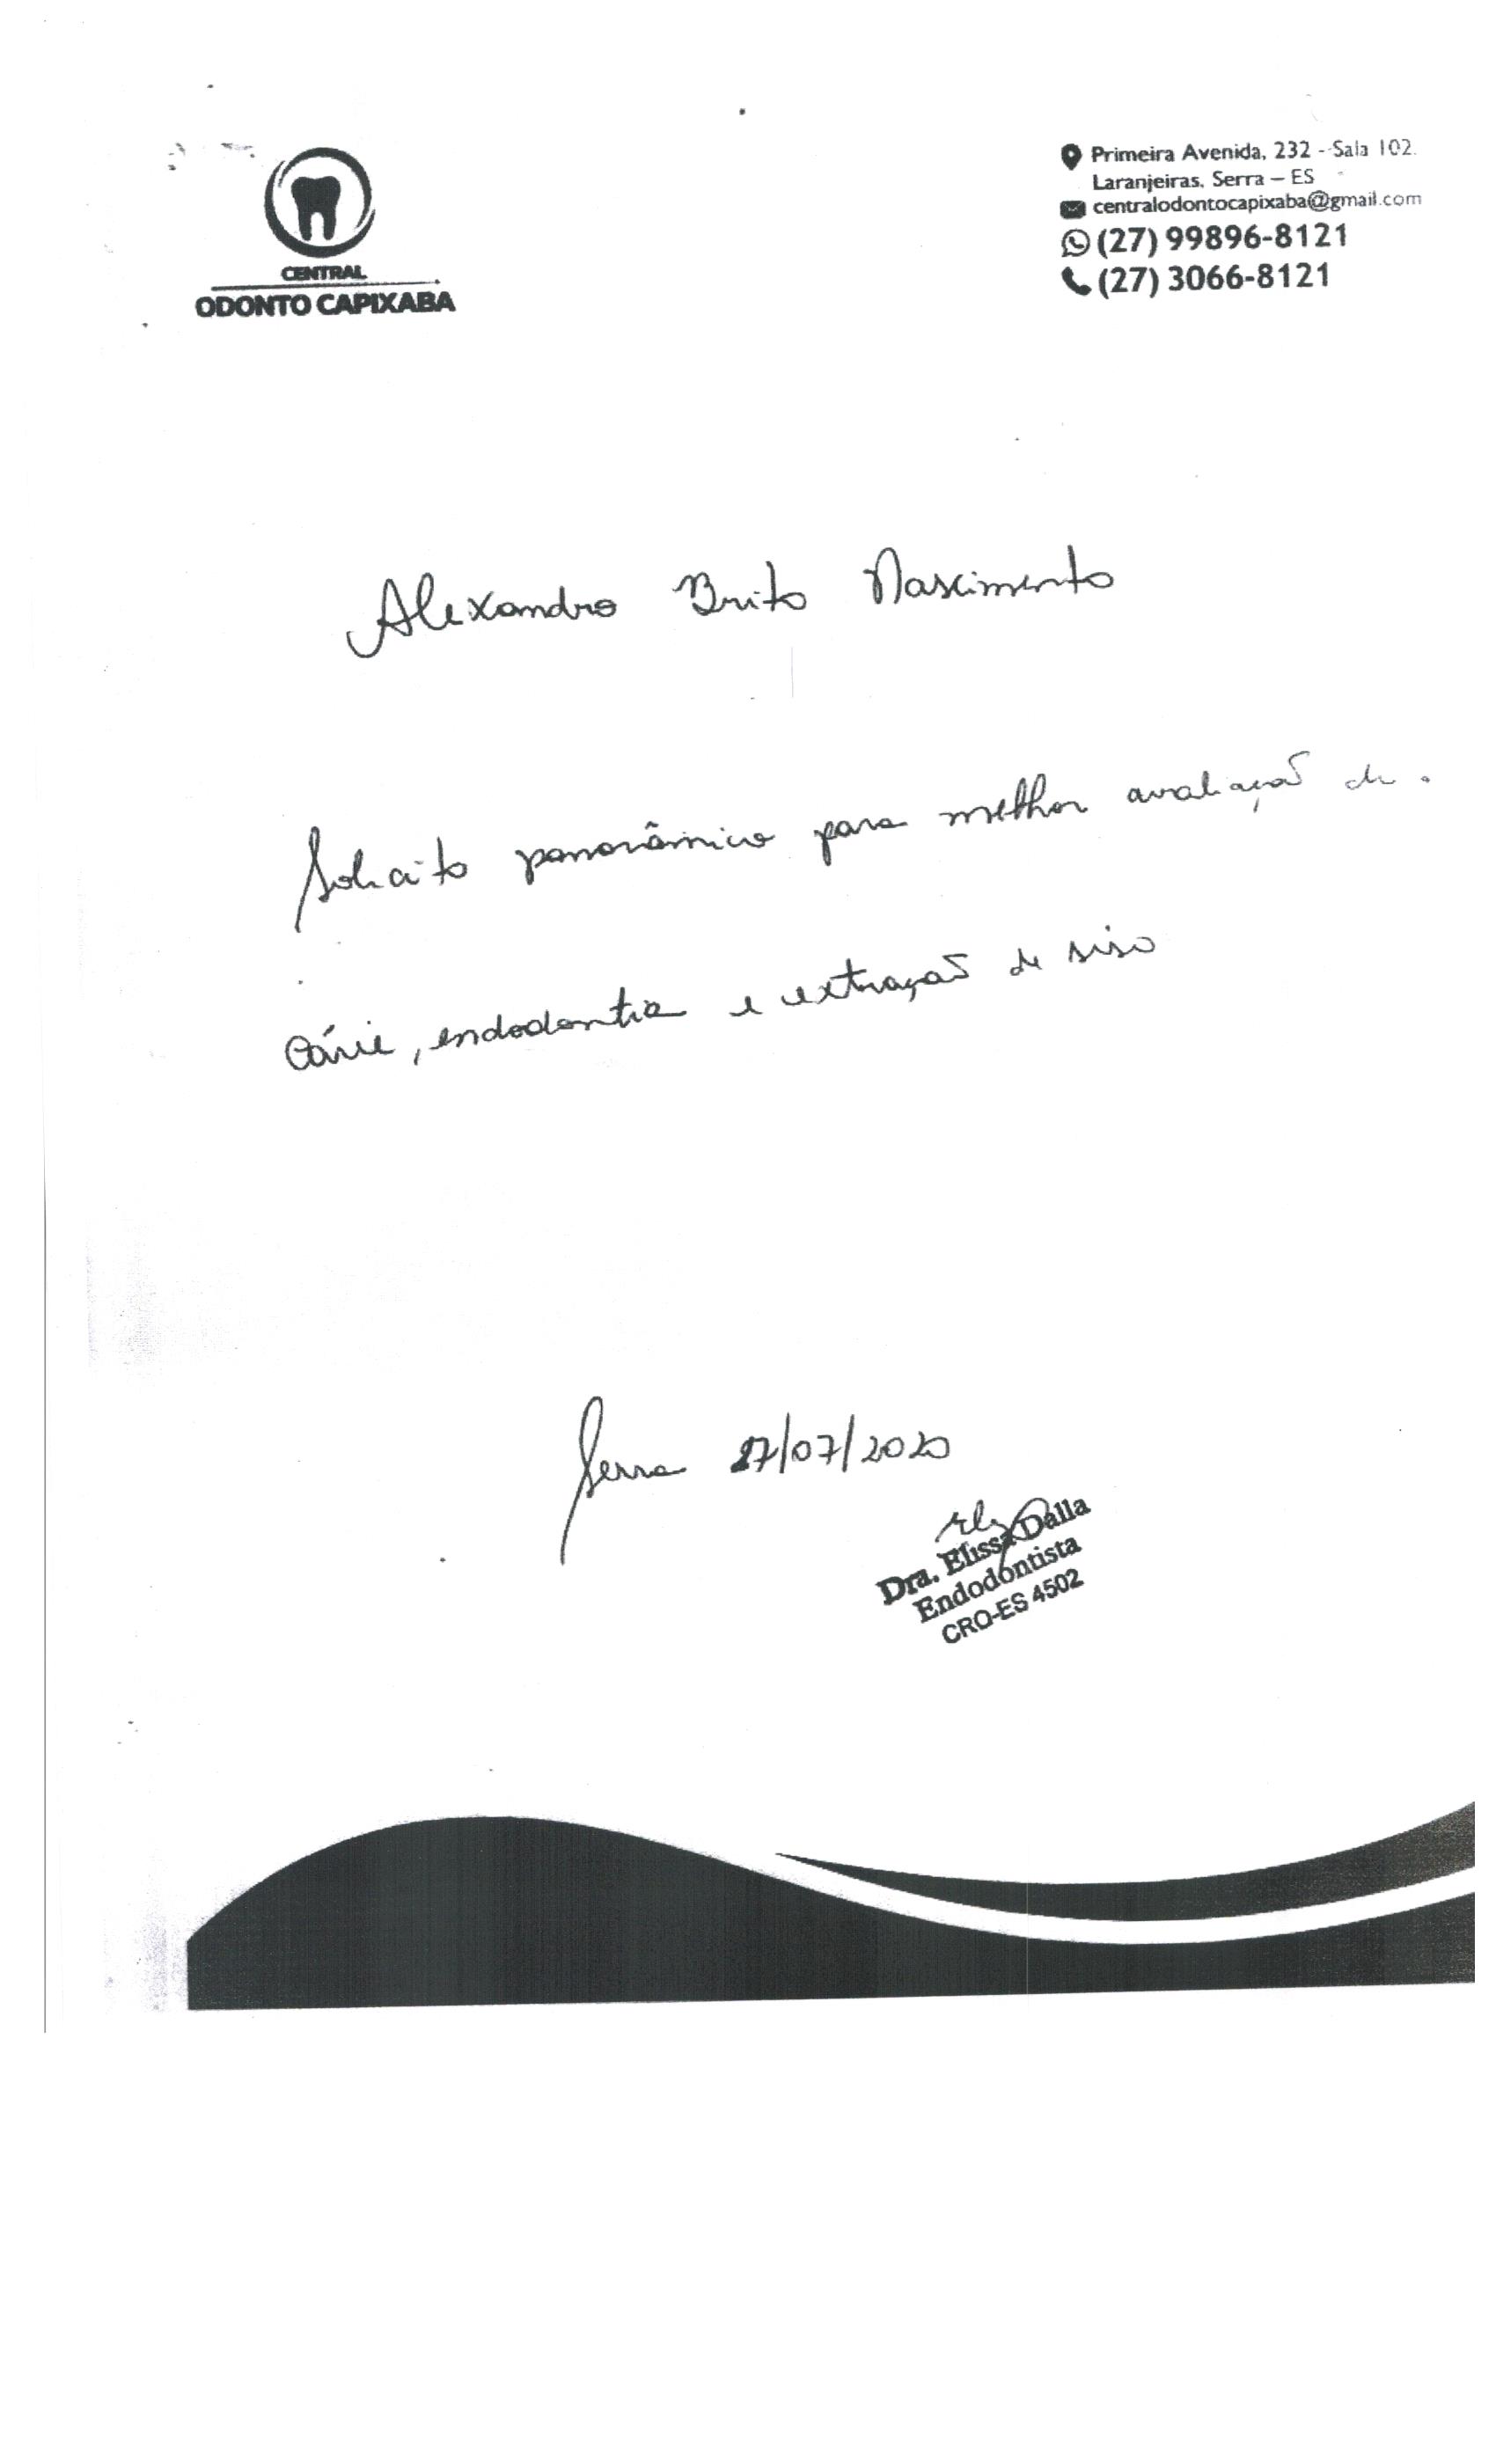 CENTRAL
ODONTO CAPIXABA
Primeira Avenida, 232 - Sala 102.
Laranjeiras, Serra – ES
centralodontocapixaba@gmail.com
(27) 99896-8121
(27) 3066-8121
Alexandro Brito Nascimento
Solicito panorâmica para melhor avaliação de
cárie, endodontia e extração de siso
Serra 27/07/2020
Dra. Elissa Dalla
Endodontista
CRO-ES 4502